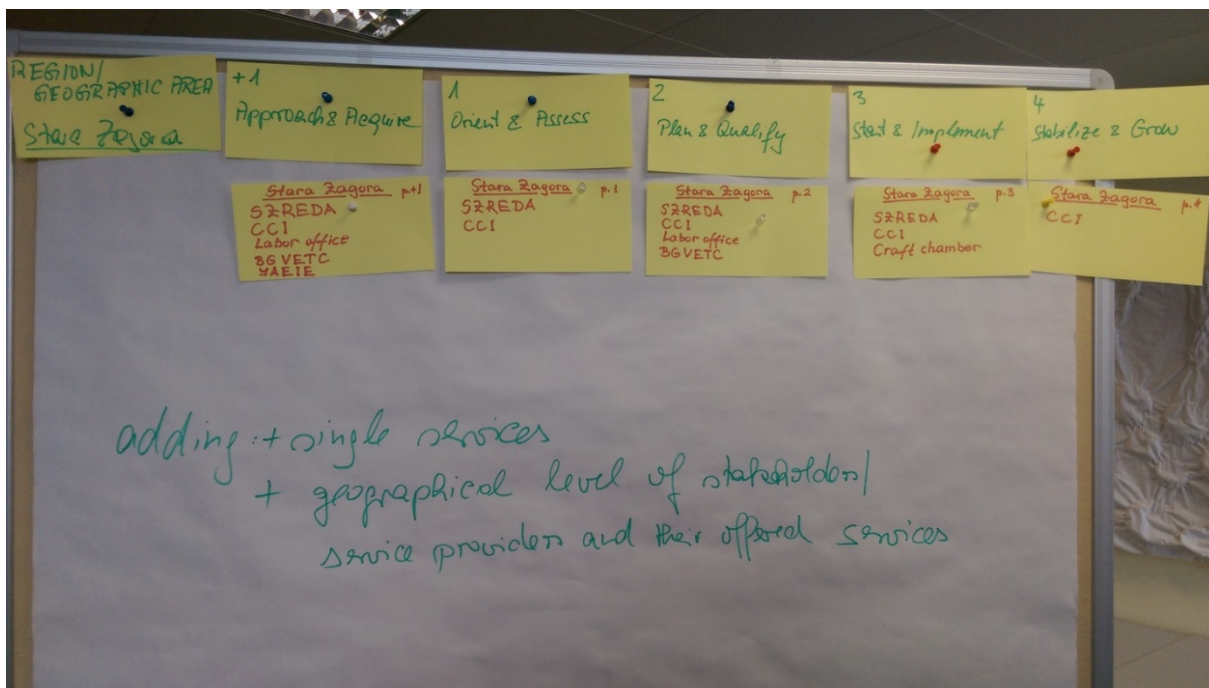 REGION/
GEOGRAPHIC AREA
Stara Zagora
+1
Approach & Acquire
1
Orient & Assess
2
Plan & Qualify
3
Start & Implement
4
Stabilize & Grow
Stara Zagora p.+1
SZREDA
CCI
Labor office
BGVETC
YAEIE
Stara Zagora p.1
SZREDA
CCI
Stara Zagora p.2
SZREDA
CCI
Labor office
BGVETC
Stara Zagora p.3
SZREDA
CCI
Craft chamber
Stara Zagora p.4
CCI
adding: + single services
+ geographical level of stakeholders/
service providers and their offered services